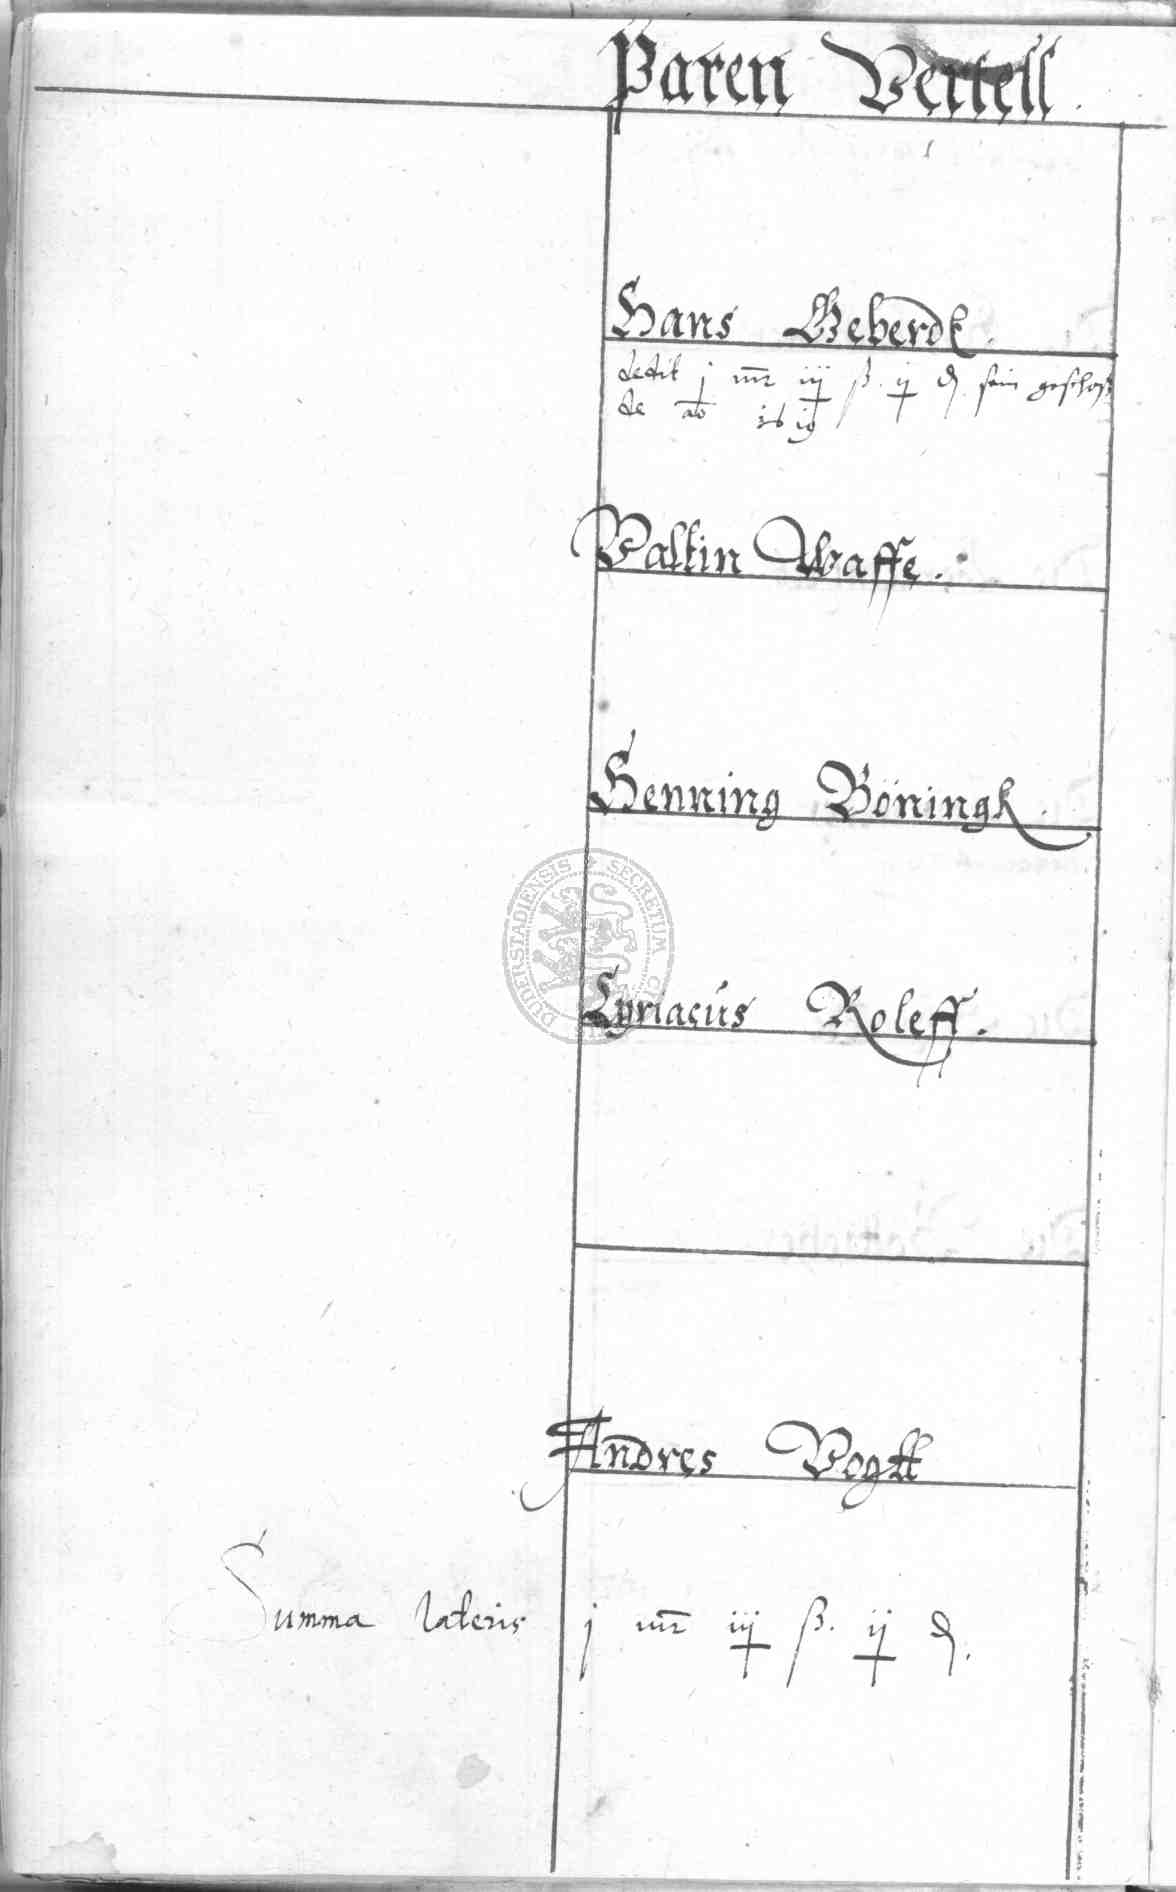 Paren Vertell.
Hans Geberdt.
dedit j mr iij ß. ij d. sein geschoß
de ao
Valtin Waffe.
Henning Böningk.
DUDERSTADIENSIS SECRETUM CI
Cyriacus Roleff.
Andres Vogtt
Summa lateris j mr iij ß. ij d.